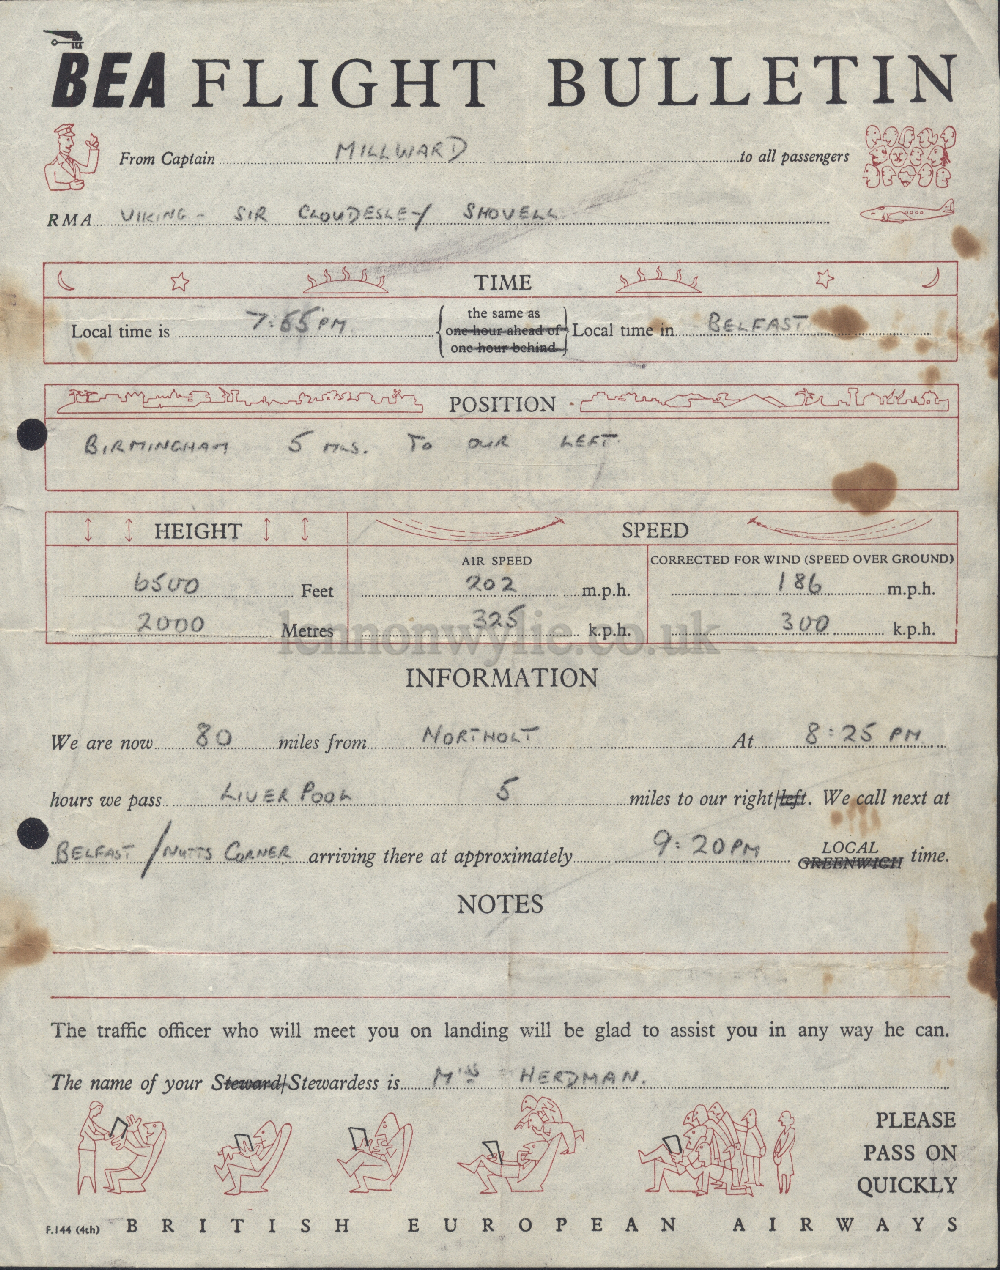 BEA FLIGHT BULLETIN
From Captain MILLWARD to all passengers
RMA VIKING - SIR CLOUDESLEY SHOVELL
TIME
the same as
Local time is 7:55PM. one hour ahead of Local time in BELFAST
one hour behind.
POSITION
BIRMINGHAM 5 MLS. TO OUR LEFT.
HEIGHT SPEED
AIR SPEED CORRECTED FOR WIND (SPEED OVER GROUND)
6500 Feet 202 m.p.h. 186 m.p.h.
2000 Metres 325 k.p.h. 300 k.p.h.
lennonwylie.co.uk
INFORMATION
We are now 80 miles from NORTHOLT At 8:25 PM
hours we pass LIVERPOOL 5 miles to our right/left. We call next at
BELFAST / NUTTS CORNER arriving there at approximately 9:20PM LOCAL GREENWICH time.
NOTES
The traffic officer who will meet you on landing will be glad to assist you in any way he can.
The name of your Steward/Stewardess is Miss HERDMAN.
PLEASE
PASS ON
QUICKLY
F.144 (4th) BRITISH EUROPEAN AIRWAYS